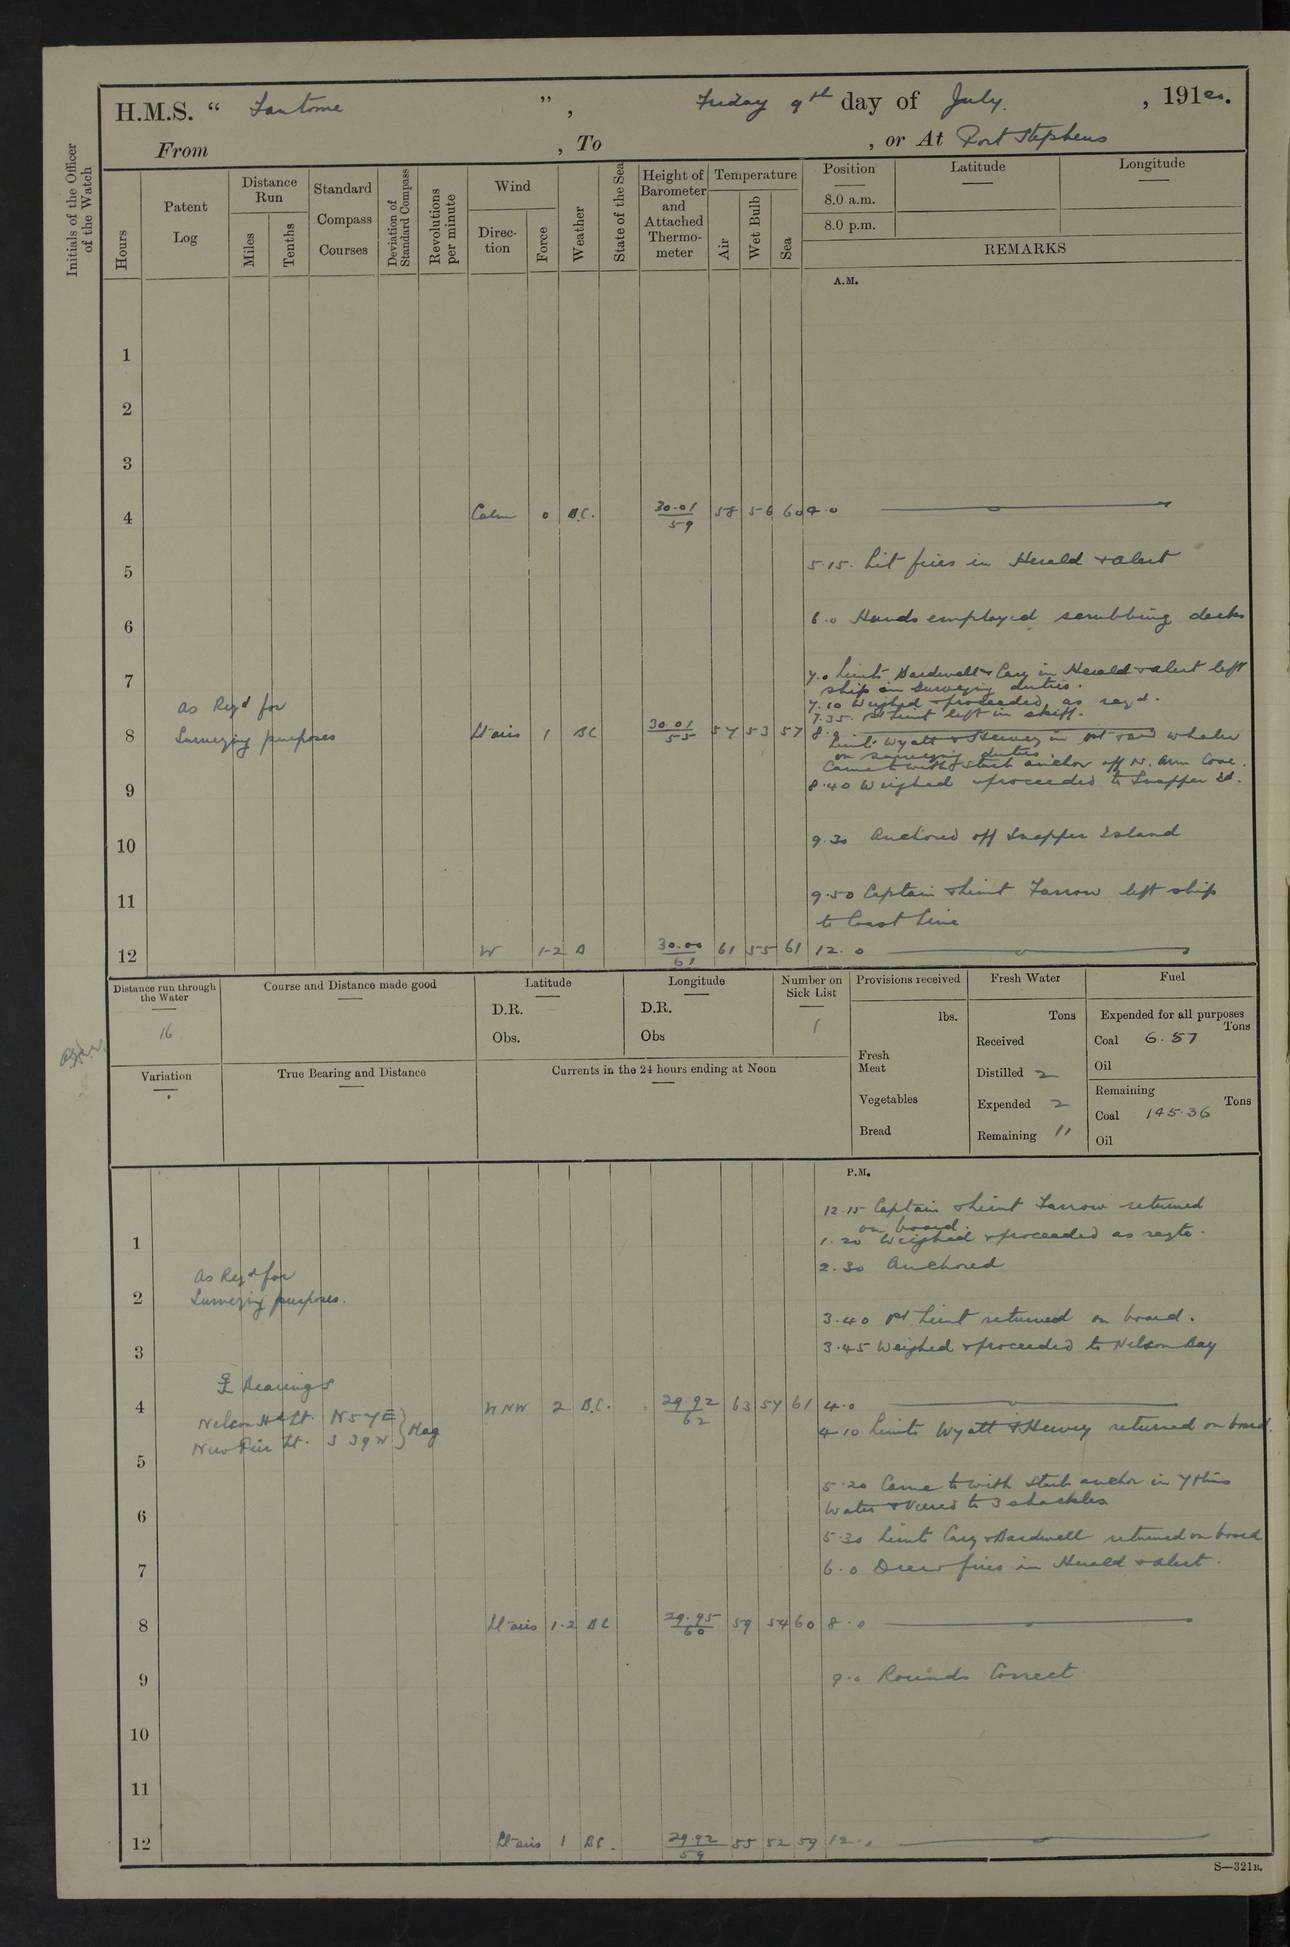 H.M.S. “ Fantome ”, Friday 9th day of July. , 191
From , To , or At Port Stephens
Initials of the Officer of the Watch
Hours
Patent Log
Distance Run
Miles
Tenths
Standard Compass Courses
Deviation of Standard Compass
Revolutions per minute
Wind
Direction
Force
Weather
State of the Sea
Height of Barometer and Attached Thermometer
Temperature
Air
Wet Bulb
Sea
Position
8.0 a.m.
8.0 p.m.
Latitude
Longitude
REMARKS
A.M.
1
2
3
4 Calm 0 B.C. 30.01 59 58 56 60 4.0
5 5.15. Lit fires in Herald & Alert
6 6.0 Hands employed scrubbing decks
7 7.0 Lieuts Bardwell & Cary in Herald & Alert left
ship on Surveying duties.
7.10 Weighed & proceeded as reqd.
7.35. 1st Lieut left in skiff.
As Reqd for
Surveying purposes
8 Lt airs 1 BC 30.01 55 57 53 57 8.0
Lieuts Wyatt & Harvey in 1st & 2nd whaler
on surveying duties
Came to with Starb anchor off N. Arm Cove.
9 8.40 Weighed & proceeded to Snapper Id.
10 9.30 Anchored off Snapper Island
11 9.50 Captain & Lieut Farrow left ship
to Coast Line
12 W 1-2 B 30.00 61 61 55 61 12.0
Distance run through the Water
16
Course and Distance made good
Latitude
D.R.
Obs.
Longitude
D.R.
Obs
Number on Sick List
1
Provisions received
lbs.
Fresh Meat
Vegetables
Bread
Fresh Water
Tons
Received
Distilled 2
Expended 2
Remaining 11
Fuel
Expended for all purposes
Tons
Coal 6.57
Oil
Remaining
Tons
Coal 145.36
Oil
Variation
True Bearing and Distance
Currents in the 24 hours ending at Noon
P.M.
12.15 Captain & Lieut Farrow returned
on board.
1 1.20 Weighed & proceeded as reqte.
2.30 Anchored
As Reqd for
2 Surveying purposes.
3.40 1st Lieut returned on board.
3 3.45 Weighed & proceeded to Nelson Bay
Bearings
4 WNW 2 B.C. 29.92 62 63 57 61 4.0
Nelson Hd Lt. N57E
New Pier Lt. S39W } Mag
4.10 Lieuts Wyatt & Harvey returned on board.
5
5.20 Came to with Starb anchor in 7 fms
6 Water & Veered to 3 shackles
5.30 Lieuts Cary & Bardwell returned on board
7 6.0 Drew fires in Herald & Alert.
8 Lt airs 1.2 BC 29.95 60 59 54 60 8.0
9 9.0 Rounds Correct
10
11
12 Lt airs 1 BC. 29.92 59 55 52 59 12.0
S—321B.